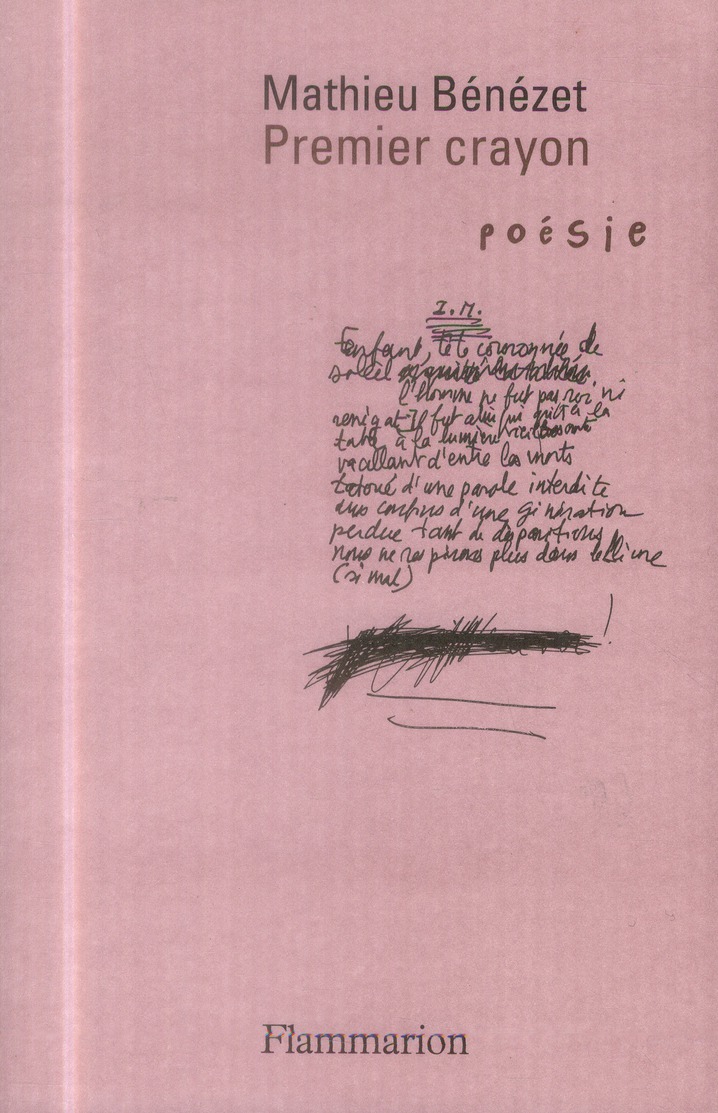 Mathieu Bénézet
Premier crayon
poésie
I.M.
Enfant, tête couronnée de
soleil
l'homme ne fut pas roi, ni
renégat Il fut celui qui à la
à la lumière
vacillant d'entre les morts
tatoué d'une parole interdite
aux confins d'une génération
perdue tant de disparitions
nous ne respirons plus dans le livre
(si mal)
Flammarion